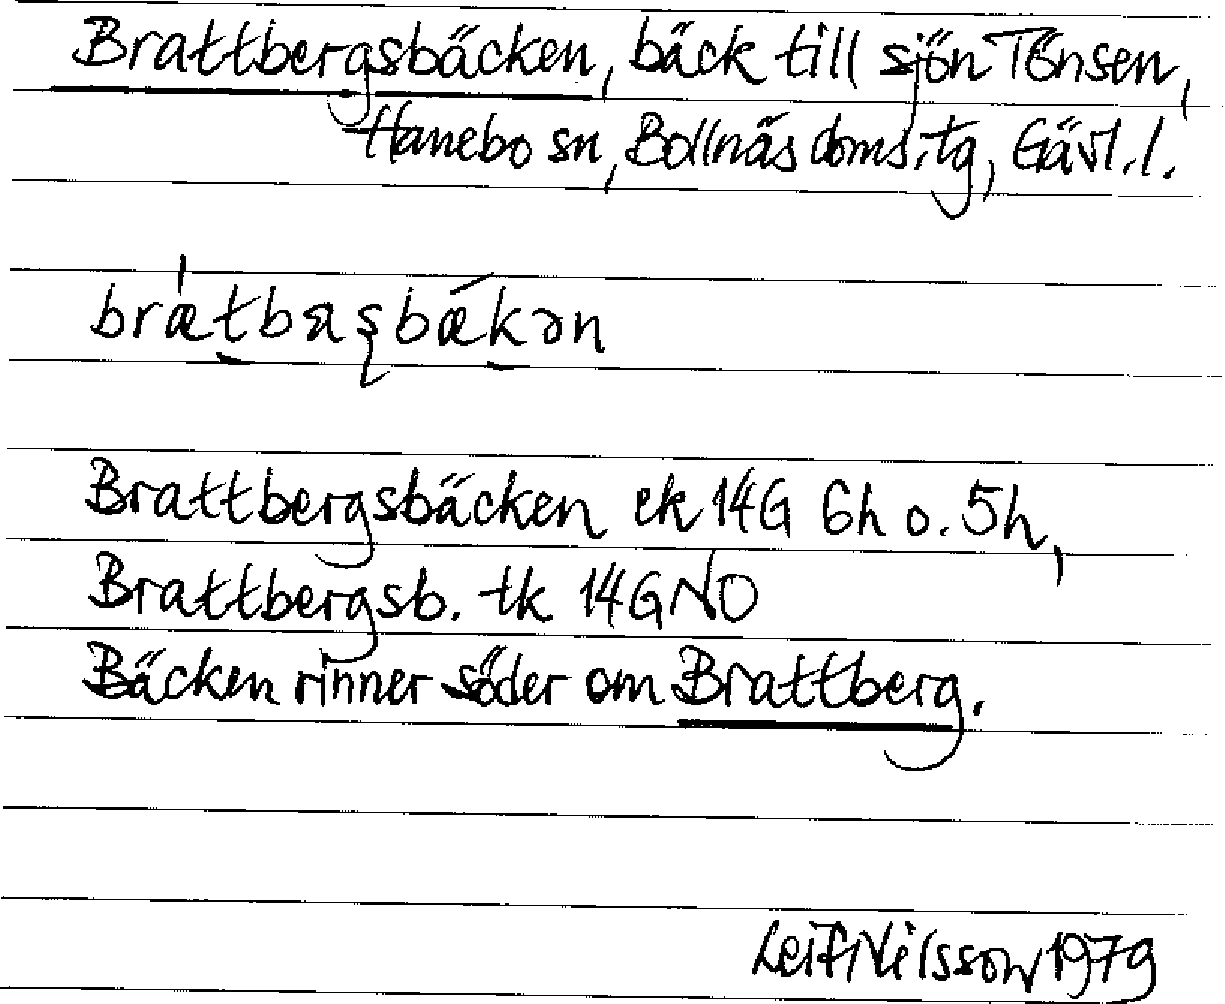 Brattbergsbäcken, bäck till sjön Tönsen,
Hanebo sn, Bollnäs doms.tg, Gävl.l.
Brattbergsbäcken ek 14G 6h o. 5h,
Brattbergsb. tk 14G NO
Bäcken rinner söder om Brattberg.
Leif Nilsson 1979